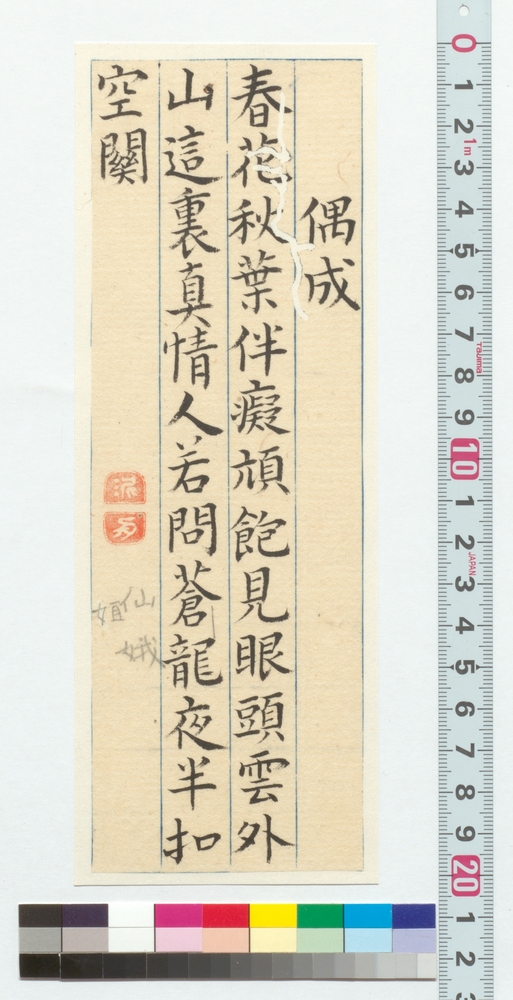 偶成
春花秋葉伴癡頑飽見眼頭雲外
山這裏真情人若問蒼龍夜半扣
空關
仙
姮
娥
0
1
2
1m
3
4
5
6
7
Tajima
8
9
10
1
2
JAPAN
3
4
5
6
7
8
9
20
1
2
3